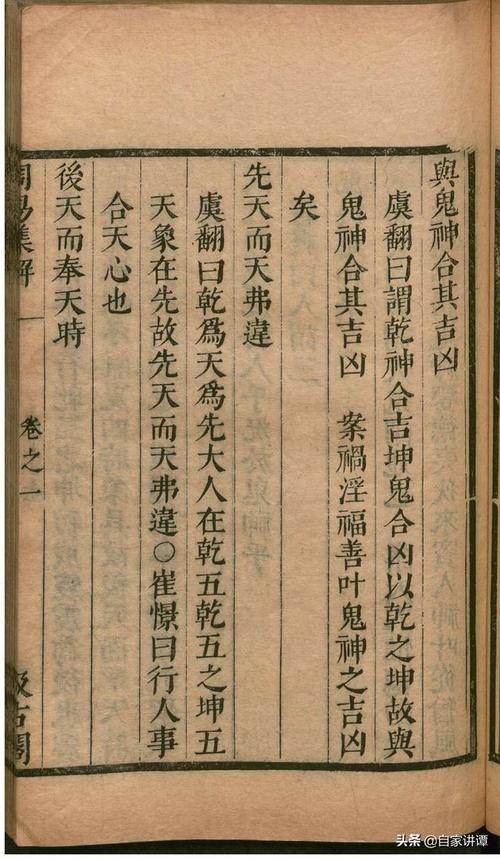 與鬼神合其吉凶
虞翻曰謂乾神合吉坤鬼合凶以乾之坤故與
鬼神合其吉凶　案禍淫福善叶鬼神之吉凶
矣
先天而天弗違
虞翻曰乾爲天爲先大人在乾五乾五之坤五
天象在先故先天而天弗違○崔憬曰行人事
合天心也
後天而奉天時
周易集解
卷之一
汲古閣
头条 @自家讲谭